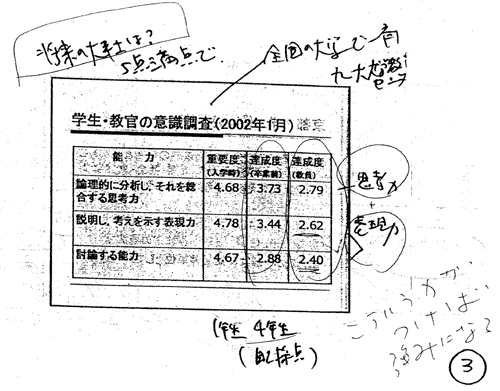 5点満点で
全国の大学で
九大
学生・教官の意識調査(2002年1月)
能　力 重要度 達成度 達成度
(入学時) (卒業前) (教員)
論理的に分析し、それを総 4.68 3.73 2.79
合する思考力
説明し、考えを示す表現力 4.78 3.44 2.62
討論する能力 4.67 2.88 2.40
思考力
+
表現力
1年生 4年生
(自己採点)
こういう力が
つけば
強みになる
3